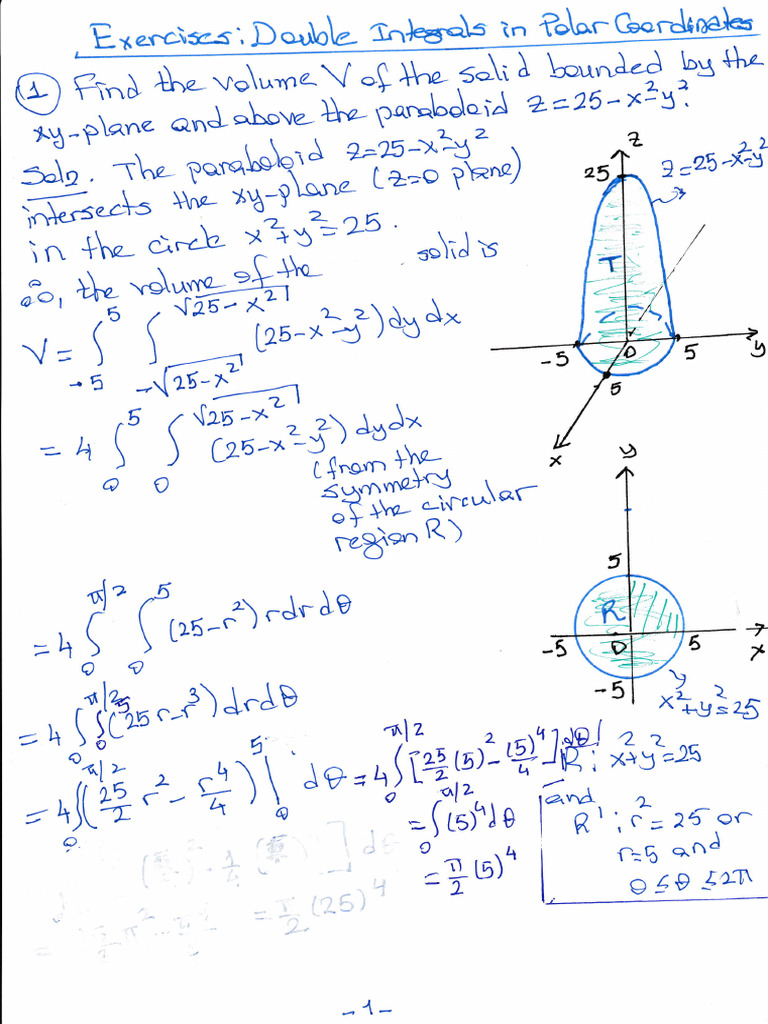 Exercises: Double Integrals in Polar Coordinates
① Find the volume V of the solid bounded by the
xy-plane and above the paraboloid z=25-x²-y².
Soln. The paraboloid z=25-x²-y²
intersects the xy-plane (z=0 plane)
in the circle x²+y²=25.
So, the volume of the solid is
V = ∫_{-5}^{5} ∫_{-√(25-x²)}^{√(25-x²)} (25-x²-y²) dy dx
= 4 ∫_0^5 ∫_0^{√(25-x²)} (25-x²-y²) dy dx
(from the
symmetry
of the circular
region R)
= 4 ∫_0^{π/2} ∫_0^5 (25-r²) r dr dθ
= 4 ∫_0^{π/2} ∫_0^5 (25r-r³) dr dθ
= 4 ∫_0^{π/2} (25/2 r² - r⁴/4) |_0^5 dθ = 4 ∫_0^{π/2} [25/2 (5)² - (5)⁴/4] dθ
= ∫_0^{π/2} (5)⁴ dθ
= π/2 (5)⁴
= π/2 (25)⁴
z
25
z=25-x²-y²
T
-5
0
5
y
5
x
y
5
R
-5
0
5
x
-5
x²+y²=25
R: x²+y²=25
and
R': r²=25 or
r=5 and
0≤θ≤2π
-1-